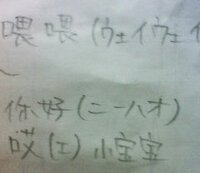 喂喂(ウェイウェイ
~
你好(ニーハオ)
哎(エ)小宝宝